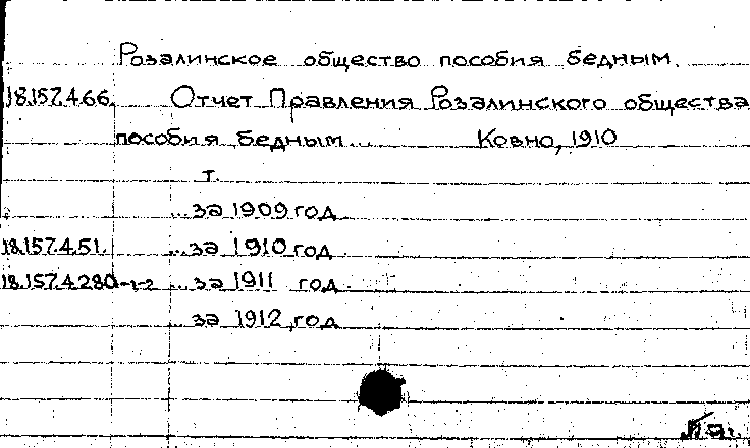 Розалинское общество пособия бедным.
18.157.4.66. Отчет Правления Розалинского общества
пособия бедным... Ковно, 1910
т.
... за 1909 год
18.157.4.51. ... за 1910 год
18.157.4.280 ... за 1911 год
... за 1912 год